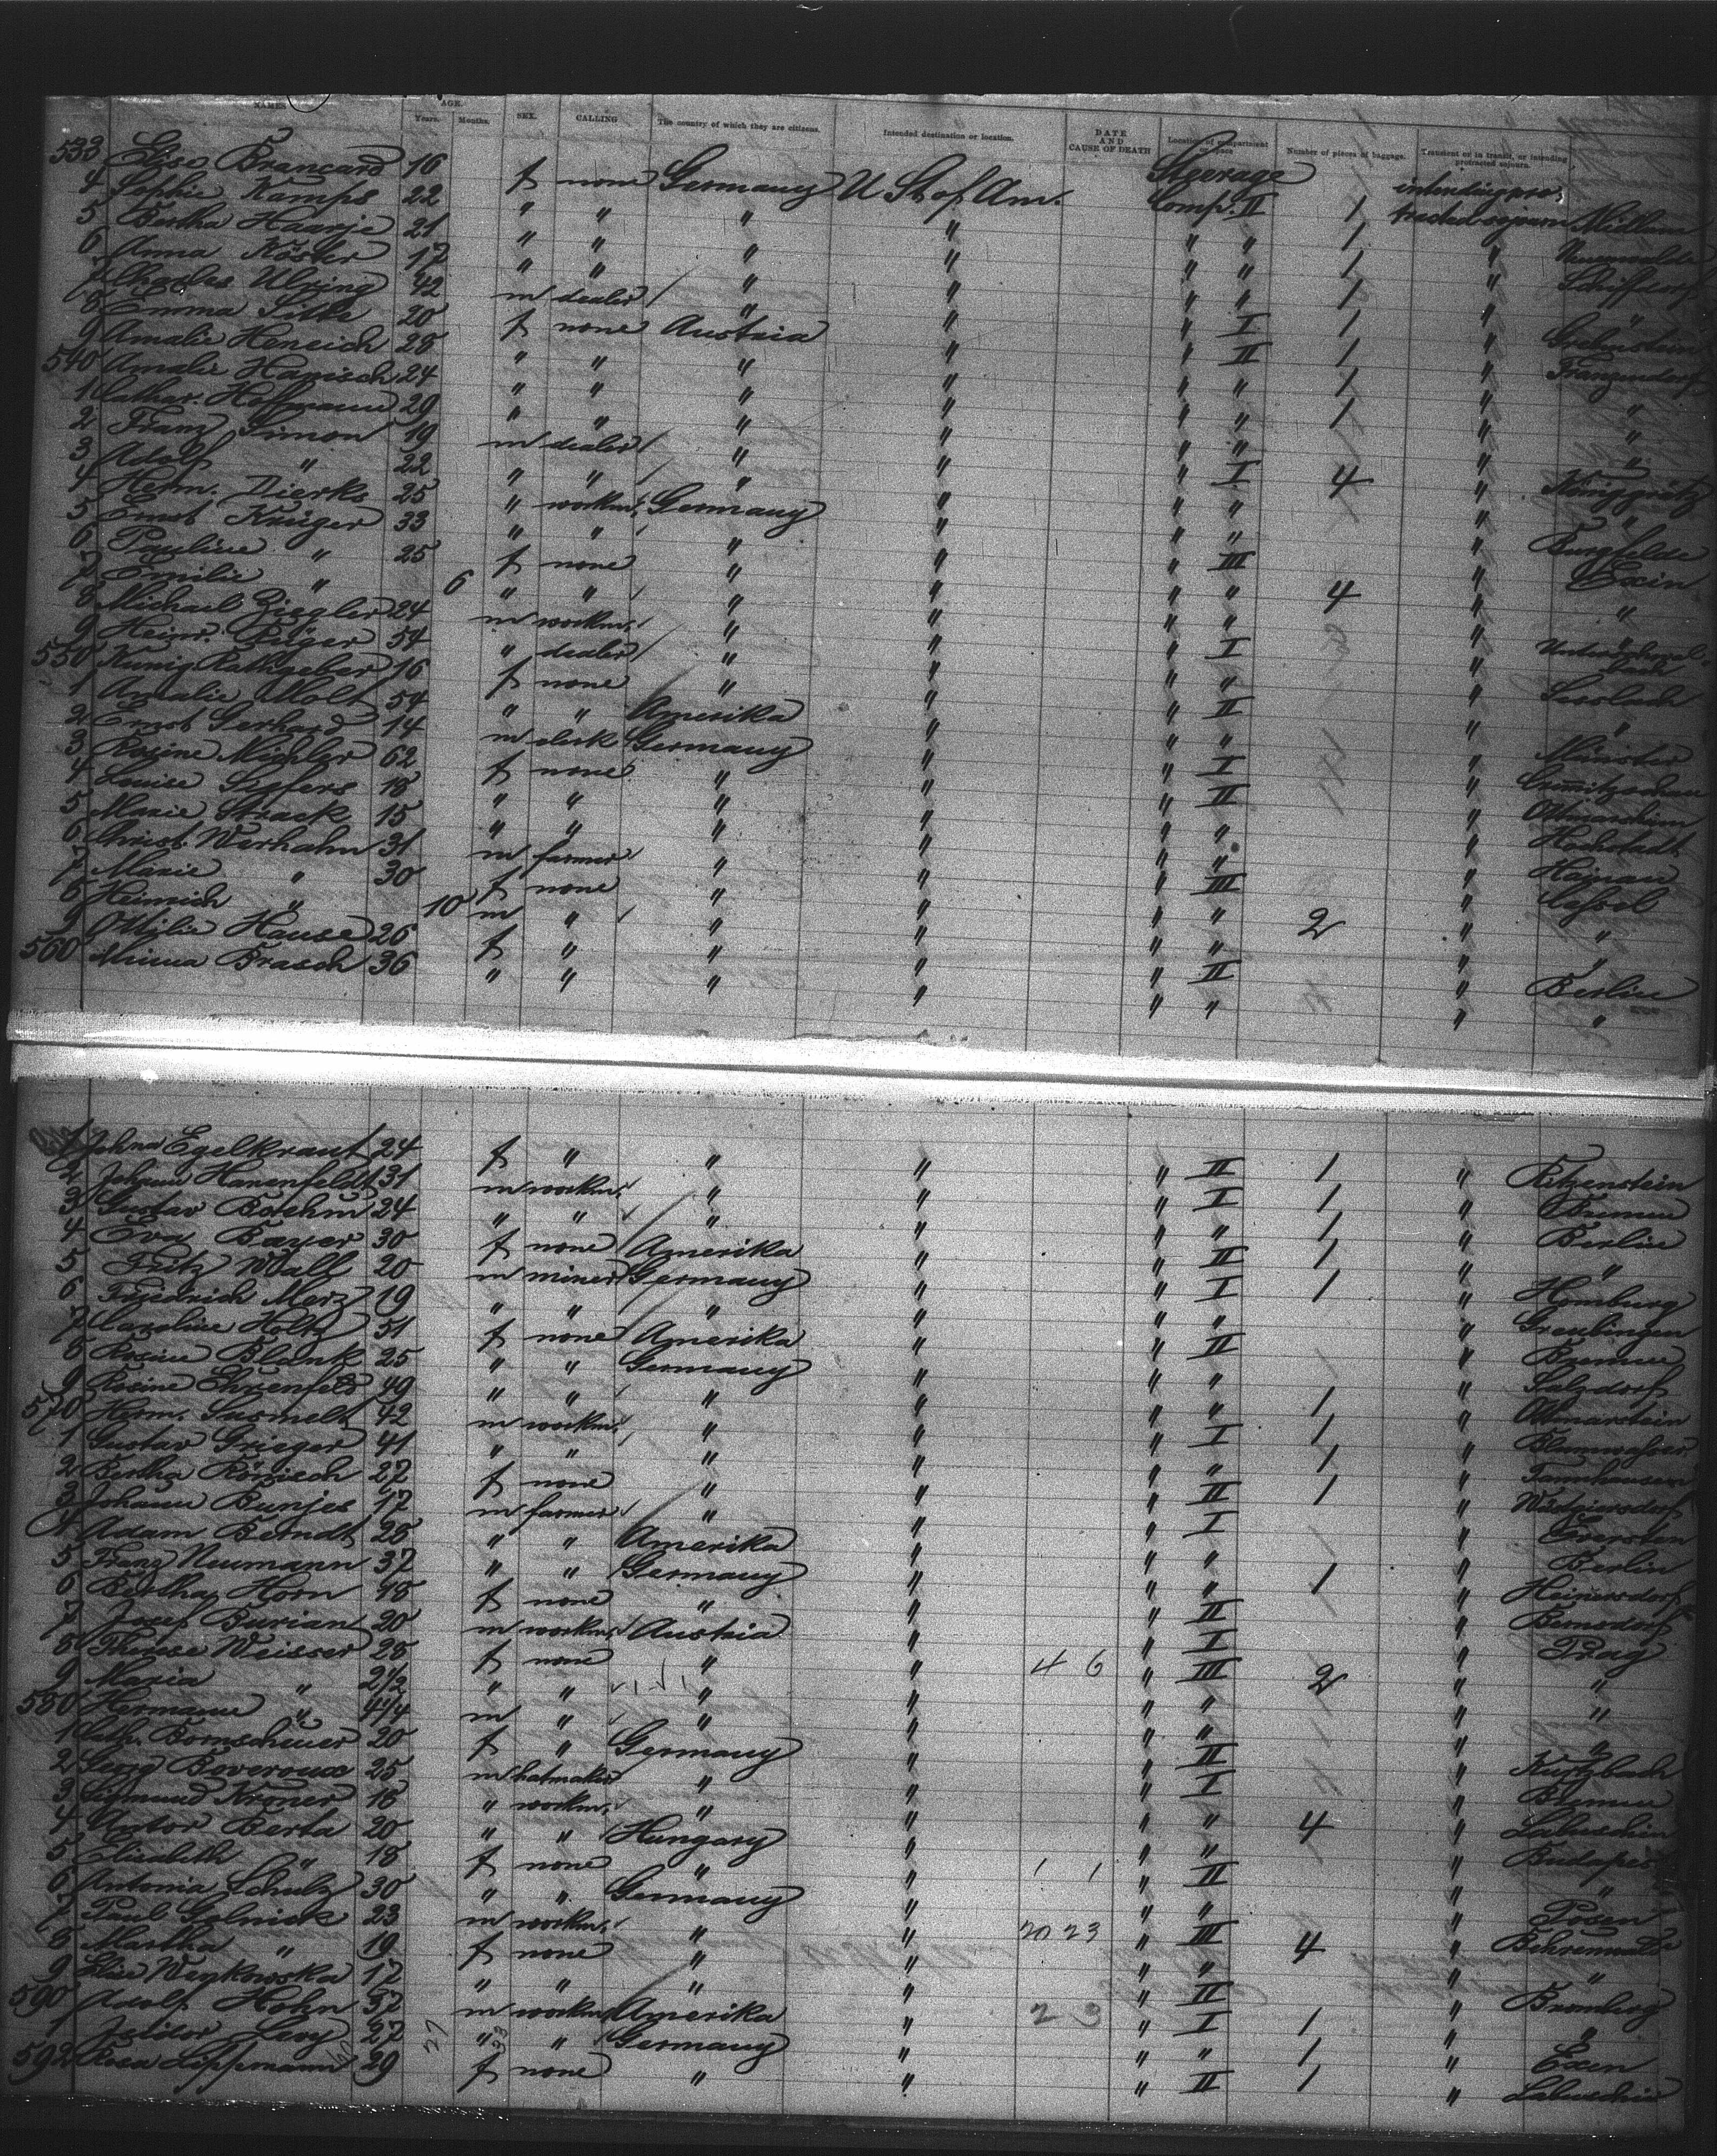 NAMES AGE. Years. Months. SEX. CALLING The country of which they are citizens. Intended destination or location. DATE AND CAUSE OF DEATH Location of compartment or space Number of pieces of baggage. Transient or in transit, or intending protracted sojourn.
533 Elise Brancard 16 f none Germany U St of Am. Steerage Comp. II 1 intending protracted sojourn
4 Sophie Kamps 22 " " " " " " 1 "
5 Bertha Haarje 21 " " " " " " 1 "
6 Anna Köster 17 " " " " " " 1 "
7 Charles Ulring 42 m dealer " " " I 1 "
8 Emma 20 f none Austria " " II 1 "
9 Amalie Henrich 28 " " " " " " 1 "
540 Amalie Hanisch 24 " " " " " " 1 "
1 Cathar. Hoffmann 29 " " " " " " "
2 Franz Simon 19 m dealer " " " I 4 " Königgrätz
3 Adolf " 22 " " " " " " " "
4 Herm. Dierks 25 " workm. Germany " " " "
5 Ernst Krüger 33 " " " " " III " Exin
6 Pauline " 25 f none " " " " 4 " "
7 Emilie " 6 " " " " " " " "
8 Michael Ziegler 24 m workm. " " " I "
9 Heinr. Rüger 54 " dealer " " " " " Sesslach
550 Kunig. Rathgeber 16 f none " " " II " "
1 Amalie Wolt 54 " " Amerika " " " " Münster
2 Ernst Gerhard 14 m clerk Germany " " I "
3 Rosine Michler 62 f none " " " II "
4 Louise Siefers 18 " " " " " " "
5 Marie Strack 15 " " " " " " " Hanau
6 Christ. Werhahn 31 m farmer " " " III " Cassel
7 Marie " 30 f none " " " " 2 " "
8 Heinrich " 10 m " " " " " " "
9 Ottilie Hause 26 f " " " " II " Berlin
560 Minna Brasch 36 " " " " " " " "
1 Johna Egelkraut 24 f " " " " II 1 " Ritzenstein
2 Johann Hanenfeldt 31 m workm. " " " I 1 " Bremen
3 Gustav Boehm 24 " " " " " " 1 " Berlin
4 Eva Bayer 30 f none Amerika " " II 1 " "
5 Fritz Wall 20 m miner Germany " " I 1 " Homburg
6 Friedrich Merz 19 " " " " " " "
7 Caroline Holtz 51 f none Amerika " " II " Bremen
8 Rosine Blank 25 " " Germany " " " " Sulzdorf
9 Rosine Ehrenfeld 49 " " " " " " 1 "
570 Herm. Susmelt 42 m workm. " " " I 1 "
1 Gustav Grieger 41 " " " " " " 1 " Tannhausen
2 Bertha Rönisch 27 f none " " " II 1 "
3 Johann Bunjes 17 m farmer " " " I " Eversten
4 Adam Berndt 28 " " Amerika " " " " Berlin
5 Franz Neumann 37 " " Germany " " " 1 " Heinersdorf
6 Bertha Horn 18 f none " " " II " Bernsdorf
7 Josef Burian 20 m workm. Austria " " I " Prag
8 Therese Weisser 28 f none " " 4 6 " III 2 " "
9 Maria " 2 1/2 " " " " " " " "
580 Hermann " 4 1/4 m " " " " " " "
1 Cath. Bornscheuer 20 f " Germany " " II "
2 Georg Boveroux 25 m hatmaker " " " I " Bremen
3 Sigmund Kroner 18 " workm. " " " " 4 " Labischin
4 Antor Berta 20 " " Hungary " " " " Budapest
5 Elisabeth " 18 f none " " 1 1 " II " "
6 Antonia Schulz 30 " " Germany " " " " Posen
7 Paul Golnick 23 m workm. " " 20 23 " III 4 "
8 Martha " 19 f none " " " " " "
9 Elise Wenkowska 17 " " " " " II " Bromberg
590 Adolf Hohn 37 m workm. Amerika " 2 3 " I 1 " "
1 Isidor Levy 27 " " Germany " " " 1 " Exin
592 Rosa Lippmann 29 f none " " " II 1 " Labischin